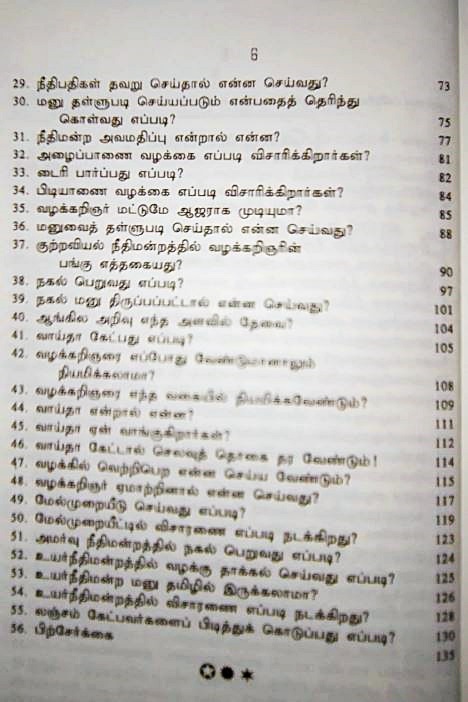 6
29. நீதிபதிகள் தவறு செய்தால் என்ன செய்வது? 73
30. மனு தள்ளுபடி செய்யப்படும் என்பதைத் தெரிந்து
கொள்வது எப்படி? 75
31. நீதிமன்ற அவமதிப்பு என்றால் என்ன? 77
32. அழைப்பாணை வழக்கை எப்படி விசாரிக்கிறார்கள்? 81
33. டைரி பார்ப்பது எப்படி? 82
34. பிடியாணை வழக்கை எப்படி விசாரிக்கிறார்கள்? 84
35. வழக்கறிஞர் மட்டுமே ஆஜராக முடியுமா? 85
36. மனுவைத் தள்ளுபடி செய்தால் என்ன செய்வது? 88
37. குற்றவியல் நீதிமன்றத்தில் வழக்கறிஞரின்
பங்கு எத்தகையது? 90
38. நகல் பெறுவது எப்படி? 97
39. நகல் மனு திருப்பப்பட்டால் என்ன செய்வது? 101
40. ஆங்கில அறிவு எந்த அளவில் தேவை? 104
41. வாய்தா கேட்பது எப்படி? 105
42. வழக்கறிஞரை எப்போது வேண்டுமானாலும்
நியமிக்கலாமா? 108
43. வழக்கறிஞரை எந்த வகையில் நியமிக்கவேண்டும்? 109
44. வாய்தா என்றால் என்ன? 111
45. வாய்தா ஏன் வாங்குகிறார்கள்? 112
46. வாய்தா கேட்டால் செலவுத் தொகை தர வேண்டும்! 114
47. வழக்கில் வெற்றிபெற என்ன செய்ய வேண்டும்? 115
48. வழக்கறிஞர் ஏமாற்றினால் என்ன செய்வது? 117
49. மேல்முறையீடு செய்வது எப்படி? 119
50. மேல்முறையீட்டில் விசாரணை எப்படி நடக்கிறது? 123
51. அமர்வு நீதிமன்றத்தில் நகல் பெறுவது எப்படி? 124
52. உயர்நீதிமன்றத்தில் வழக்கு தாக்கல் செய்வது எப்படி? 125
53. உயர்நீதிமன்ற மனு தமிழில் இருக்கலாமா? 126
54. உயர்நீதிமன்றத்தில் விசாரணை எப்படி நடக்கிறது? 128
55. லஞ்சம் கேட்பவர்களைப் பிடித்துக் கொடுப்பது எப்படி? 130
56. பிற்சேர்க்கை 135